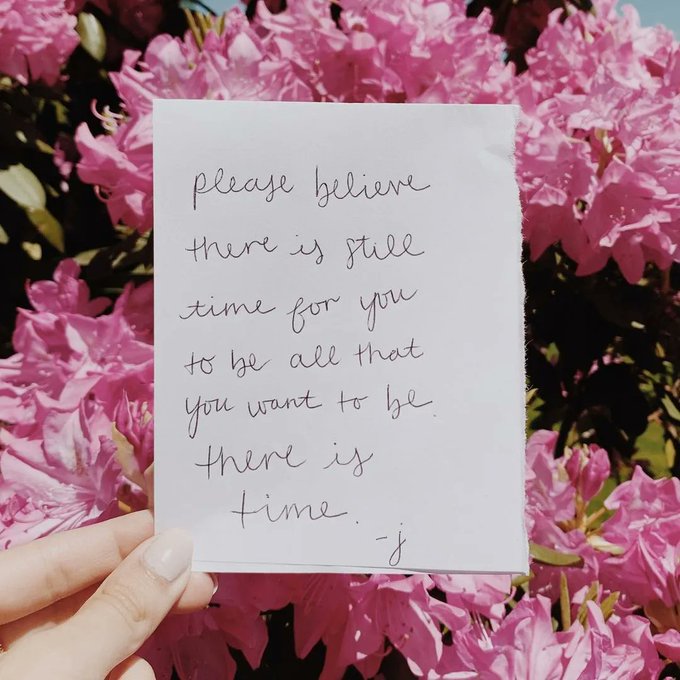 please believe
there is still
time for you
to be all that
you want to be.
there is
time.
-j